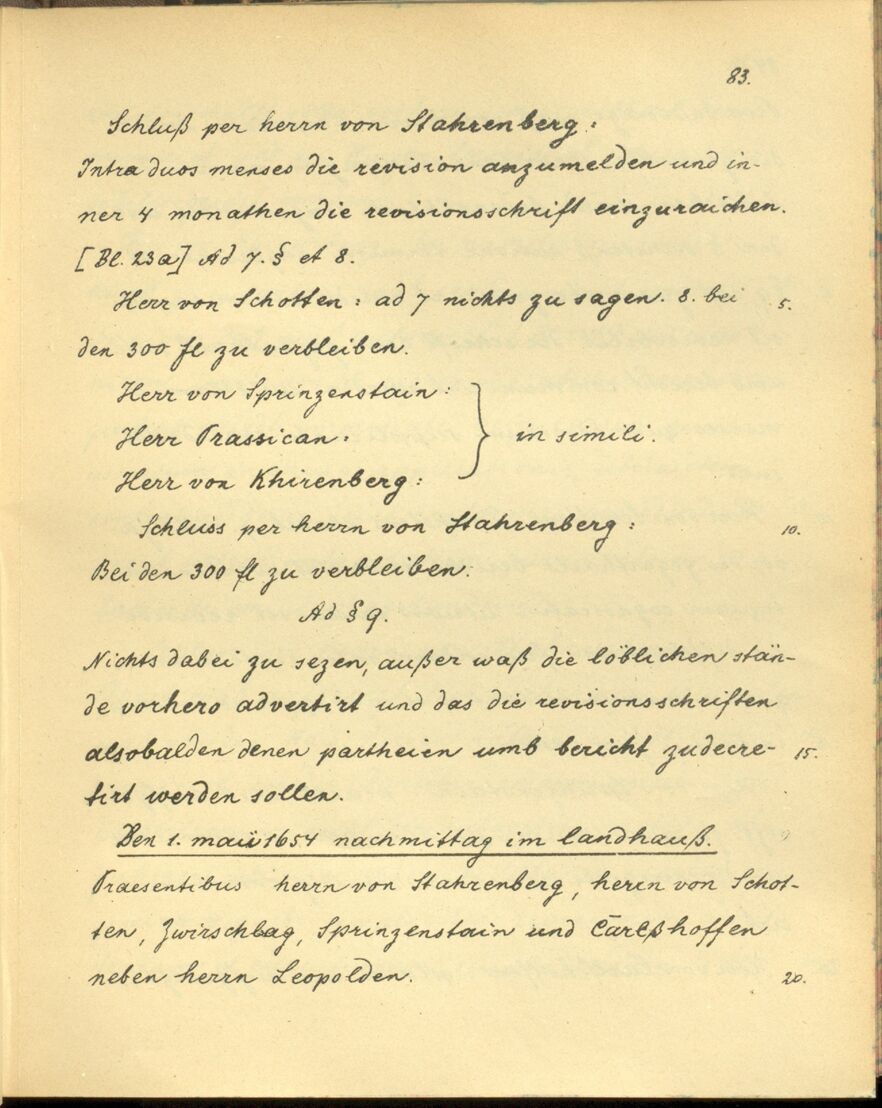 83.
Schluß per herrn von Stahrenberg:
Intra duos menses die revision anzumelden und in-
ner 4 monathen die revisionsschrift einzuraichen.
[Bl. 23a] Ad 7. § et 8.
Herr von Schotten: ad 7 nichts zu sagen. 8. bei 5.
den 300 fl zu verbleiben.
Herr von Sprinzenstain:
Herr Prassican: } in simili.
Herr von Khirenberg:
Schluss per herrn von Stahrenberg: 10.
Bei den 300 fl zu verbleiben.
Ad § 9.
Nichts dabei zu sezen, außer waß die löblichen stän-
de vorhero advertirt und das die revisionsschriften
alsobalden denen partheien umb bericht zudecre- 15.
tirt werden sollen.
Den 1. maii 1654 nachmittag im landhauß.
Praesentibus herrn von Stahrenberg, herrn von Schot-
ten, Zwirschlag, Sprinzenstain und Carlßhoffen
neben herrn Leopolden. 20.